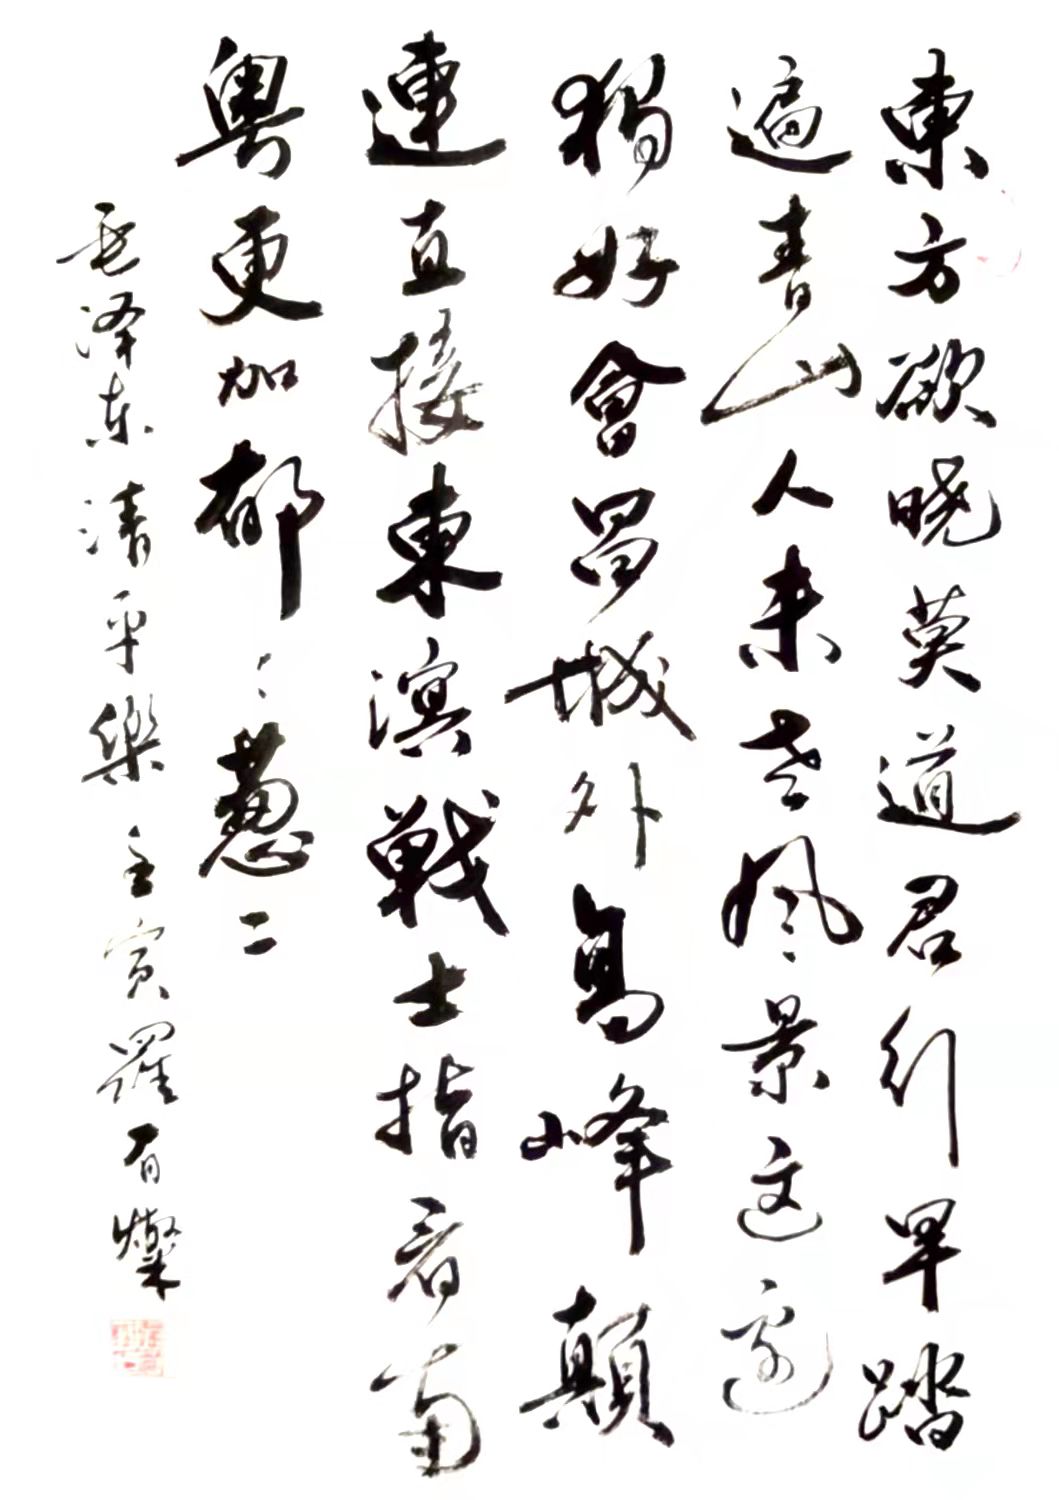 東方欲晓莫道君行早踏
遍青山人未老风景这邊
獨好會昌城外高峰顛
連直接東溟戰士指看南
粤更加郁〻葱〻
毛泽东清平樂 壬寅羅有燦